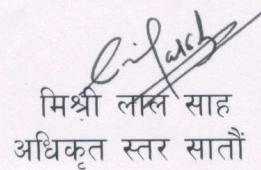 मिश्री लाल साह
अधिकृत स्तर सातौं